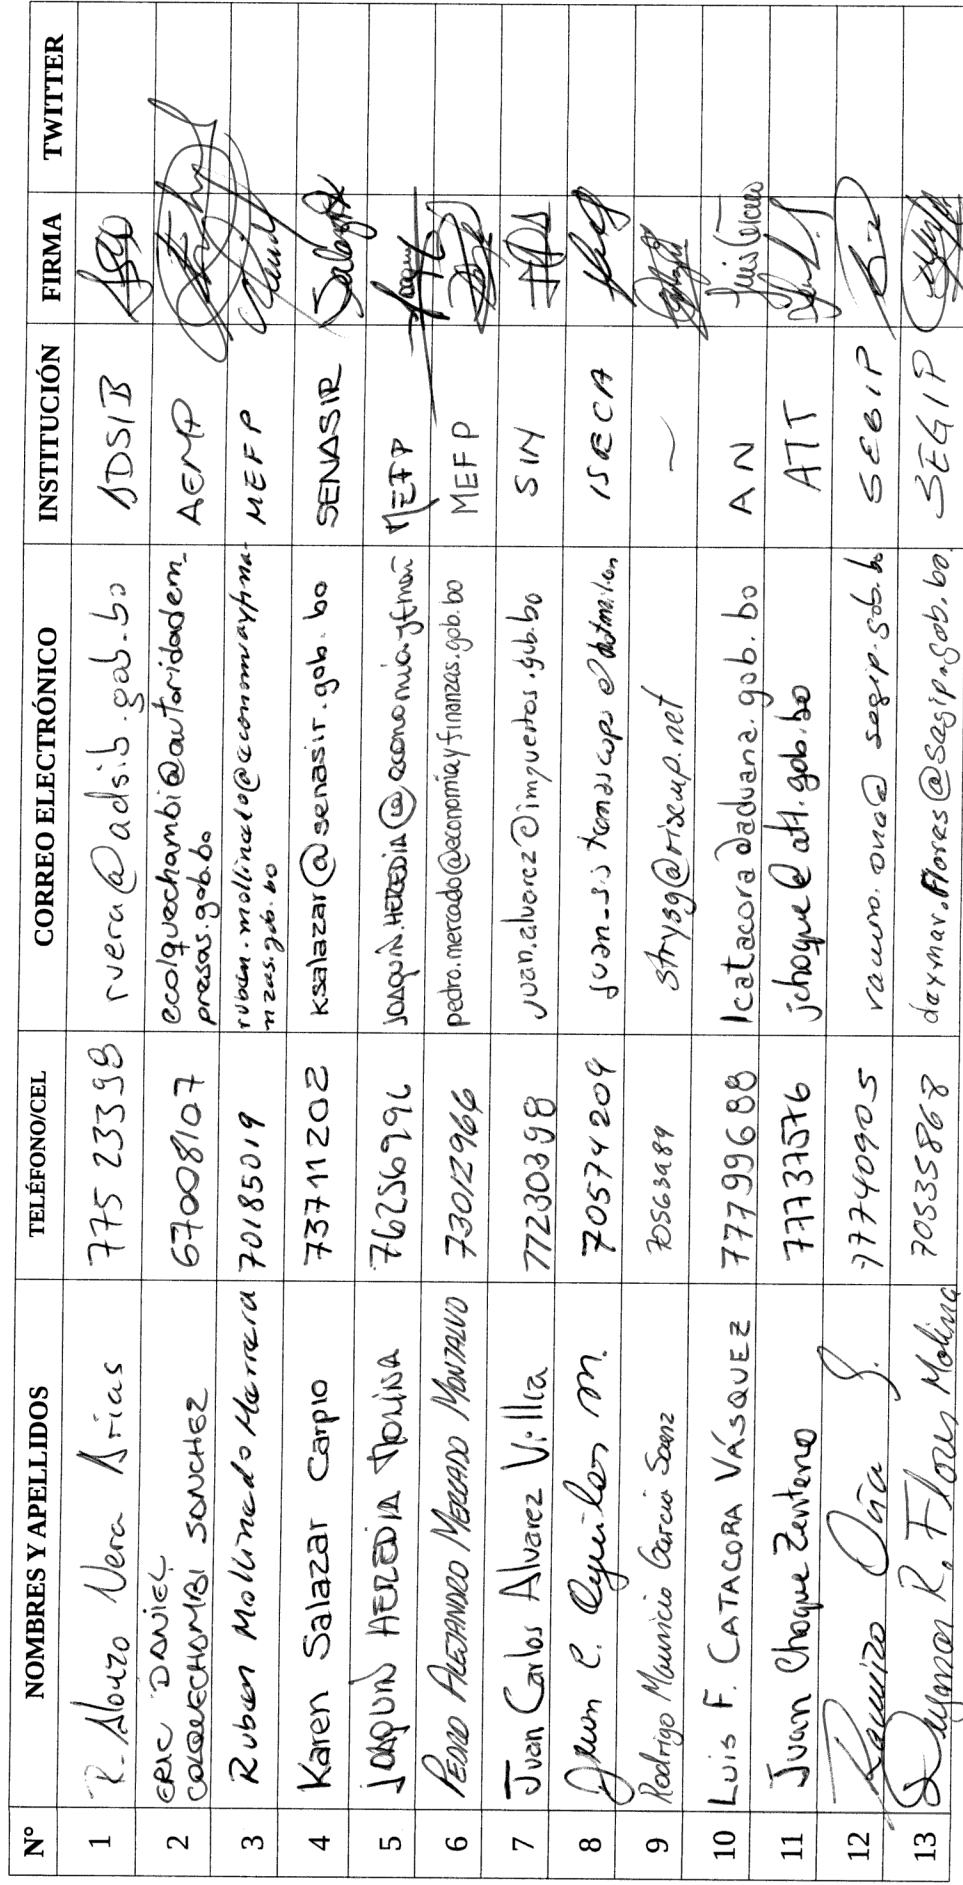 N° NOMBRES Y APELLIDOS TELÉFONO/CEL CORREO ELECTRÓNICO INSTITUCIÓN FIRMA TWITTER
1 R. Alonzo Vera Arias 775 23398 rvera@adsib.gob.bo ADSIB
2 ERIC DANIEL COLQUECHAMBI SANCHEZ 67008107 ecolquechambi@autoridadem_
presas.gob.bo AEMP
3 Ruben Mollinedo Marrera 70185019 ruben.mollinedo@economiayfina-
nzas.gob.bo MEFP
4 Karen Salazar Carpio 73711202 ksalazar@senasir.gob.bo SENASIR
5 JOAQUIN HEREDIA MOLINA 76256996 JOAQUIN.HEREDIA@economia MEFP
6 PEDRO ALEJANDRO MERCADO MONTALVO 73012966 pedro.mercado@economíayfinanzas.gob.bo MEFP
7 Juan Carlos Alvarez Villla 77230398 juan.alvarez@impuestos.gob.bo SIN
8 Juan C. Aguilar M. 70574209 ISECA
9 Rodrigo Mauricio Garcia Saenz 70563989 strysg@riseup.net ~
10 LUIS F. CATACORA VÁSQUEZ 77799688 lcatacora@aduana.gob.bo AN
11 Juan Choque Zenteno 77737576 jchoque@att.gob.bo ATT
12 Ramiro Oña G. 77740905 ramiro.ona@segip.gob.bo SEGIP
13 Daymar R. Flores Molina 70535868 daymar.flores@segip.gob.bo. SEGIP